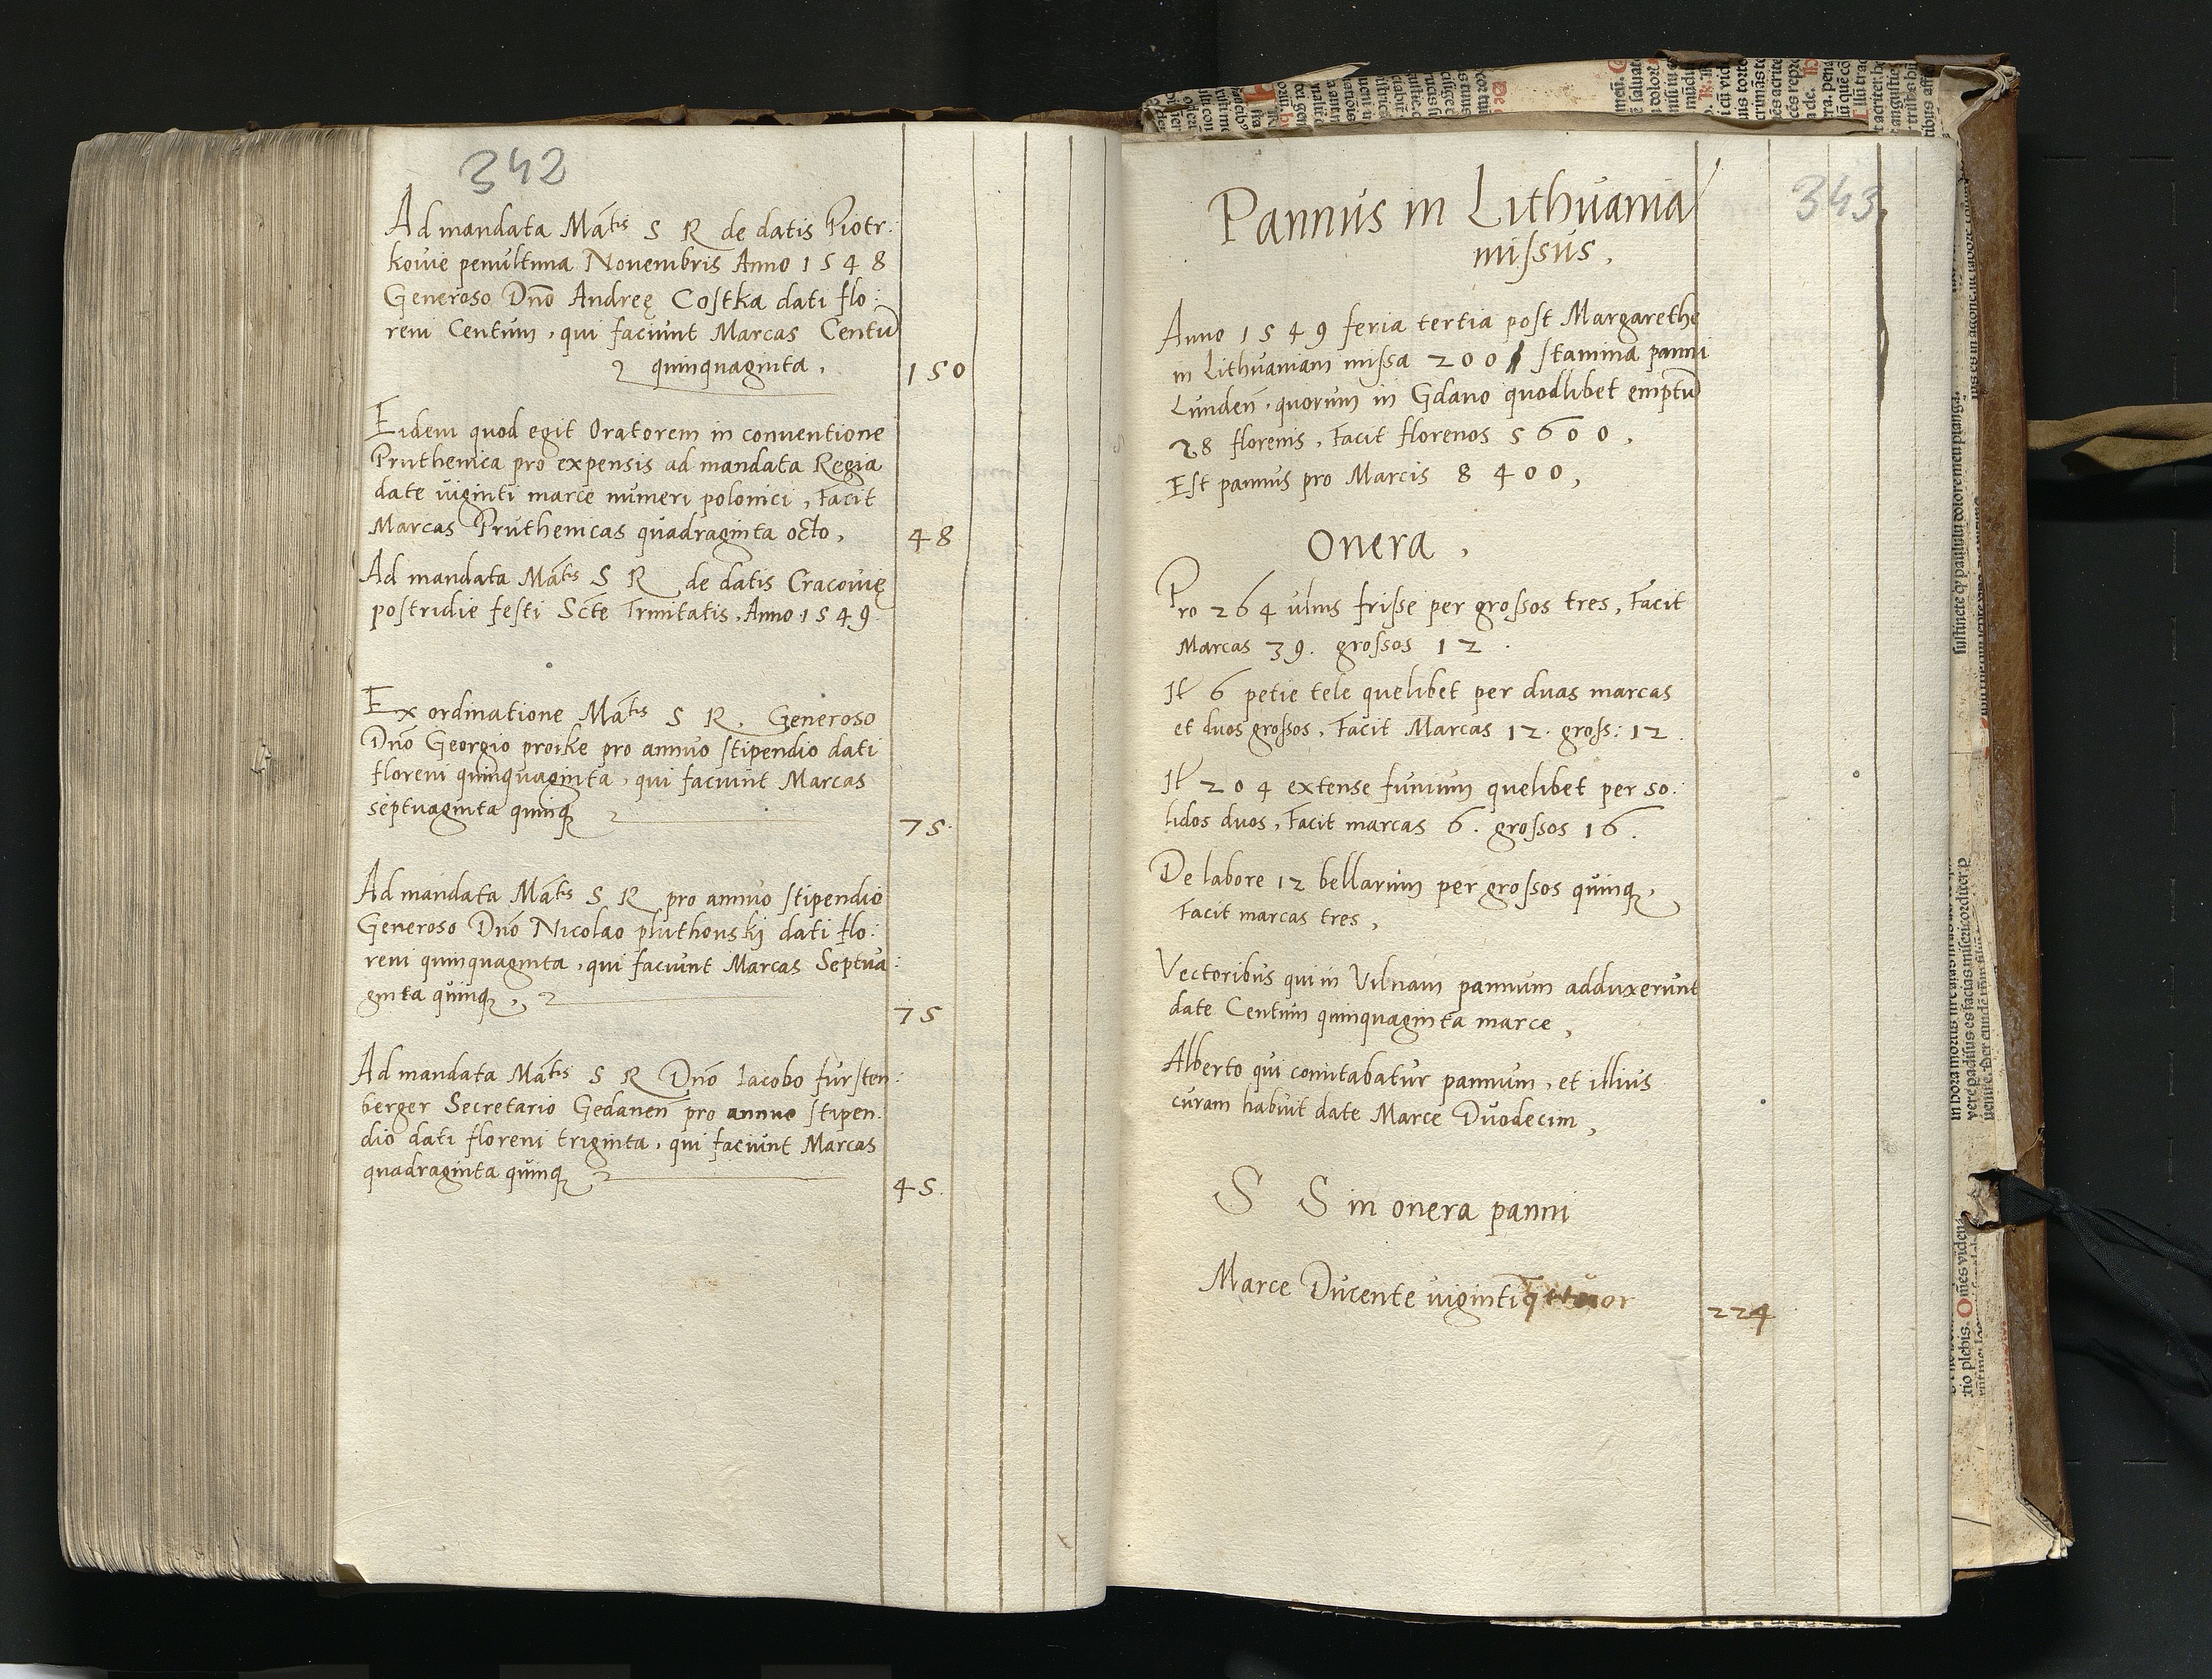 342
Ad mandata Mātis S R de datis Piotr:
kouie penultima Nouembris Anno 1548
Generoso Dnō Andreę Costka dati flo:
reni Centum, qui faciunt Marcas Centū
quinquaginta, 150
Eidem quod egit Oratorem in conuentione
Pruthenica pro expensis ad mandata Regia
date uiginti marce numeri polonici, Facit
Marcas Pruthenicas quadraginta octo, 48
Ad mandata Mātis S R de datis Cracouię
postridie festi Sctē Trinitatis, Anno 1549
Ex ordinatione Mātis S R. Generoso
Dnō Georgio proike pro annuo stipendio dati
floreni quinquaginta, qui faciunt Marcas
septuaginta quinq 75.
Ad mandata Mātis S R pro annuo stipendio
Generoso Dnō Nicolao pluthouskj dati flo:
reni quinquaginta, qui faciunt Marcas Septua:
ginta quinq, 75
Ad mandata Mātis S R Dnō Iacobo fursten:
berger Secretario Gedanen̄ pro annuo stipen:
dio dati floreni triginta, qui faciunt Marcas
quadraginta quinq 45.
343
Pannus in Lithuania
missus,
Anno 1549 feria tertia post Margarethe
in Lithuaniam missa 200 stamina panni
Lunden̄, quorum in Gdano quodlibet emptū
28 florenis, Facit florenos 5600,
Est pannus pro Marcis 8400,
Onera,
Pro 264 ulnis frisse per grossos tres, Facit
Marcas 39. grossos 12.
It 6 petie tele quelibet per duas marcas
et duos grossos, Facit Marcas 12. gross: 12.
It 204 extense funium quelibet per so:
lidos duos, Facit marcas 6. grossos 16.
De labore 12 bellarum per grossos quinq,
Facit marcas tres,
Vectoribus qui in Vilnam pannum adduxerunt
date Centum quinquaginta marce,
Alberto qui comitabatur pannum, et illius
curam habuit date Marce Duodecim,
S S in onera panni
Marce Ducente uiginti qttuor 224